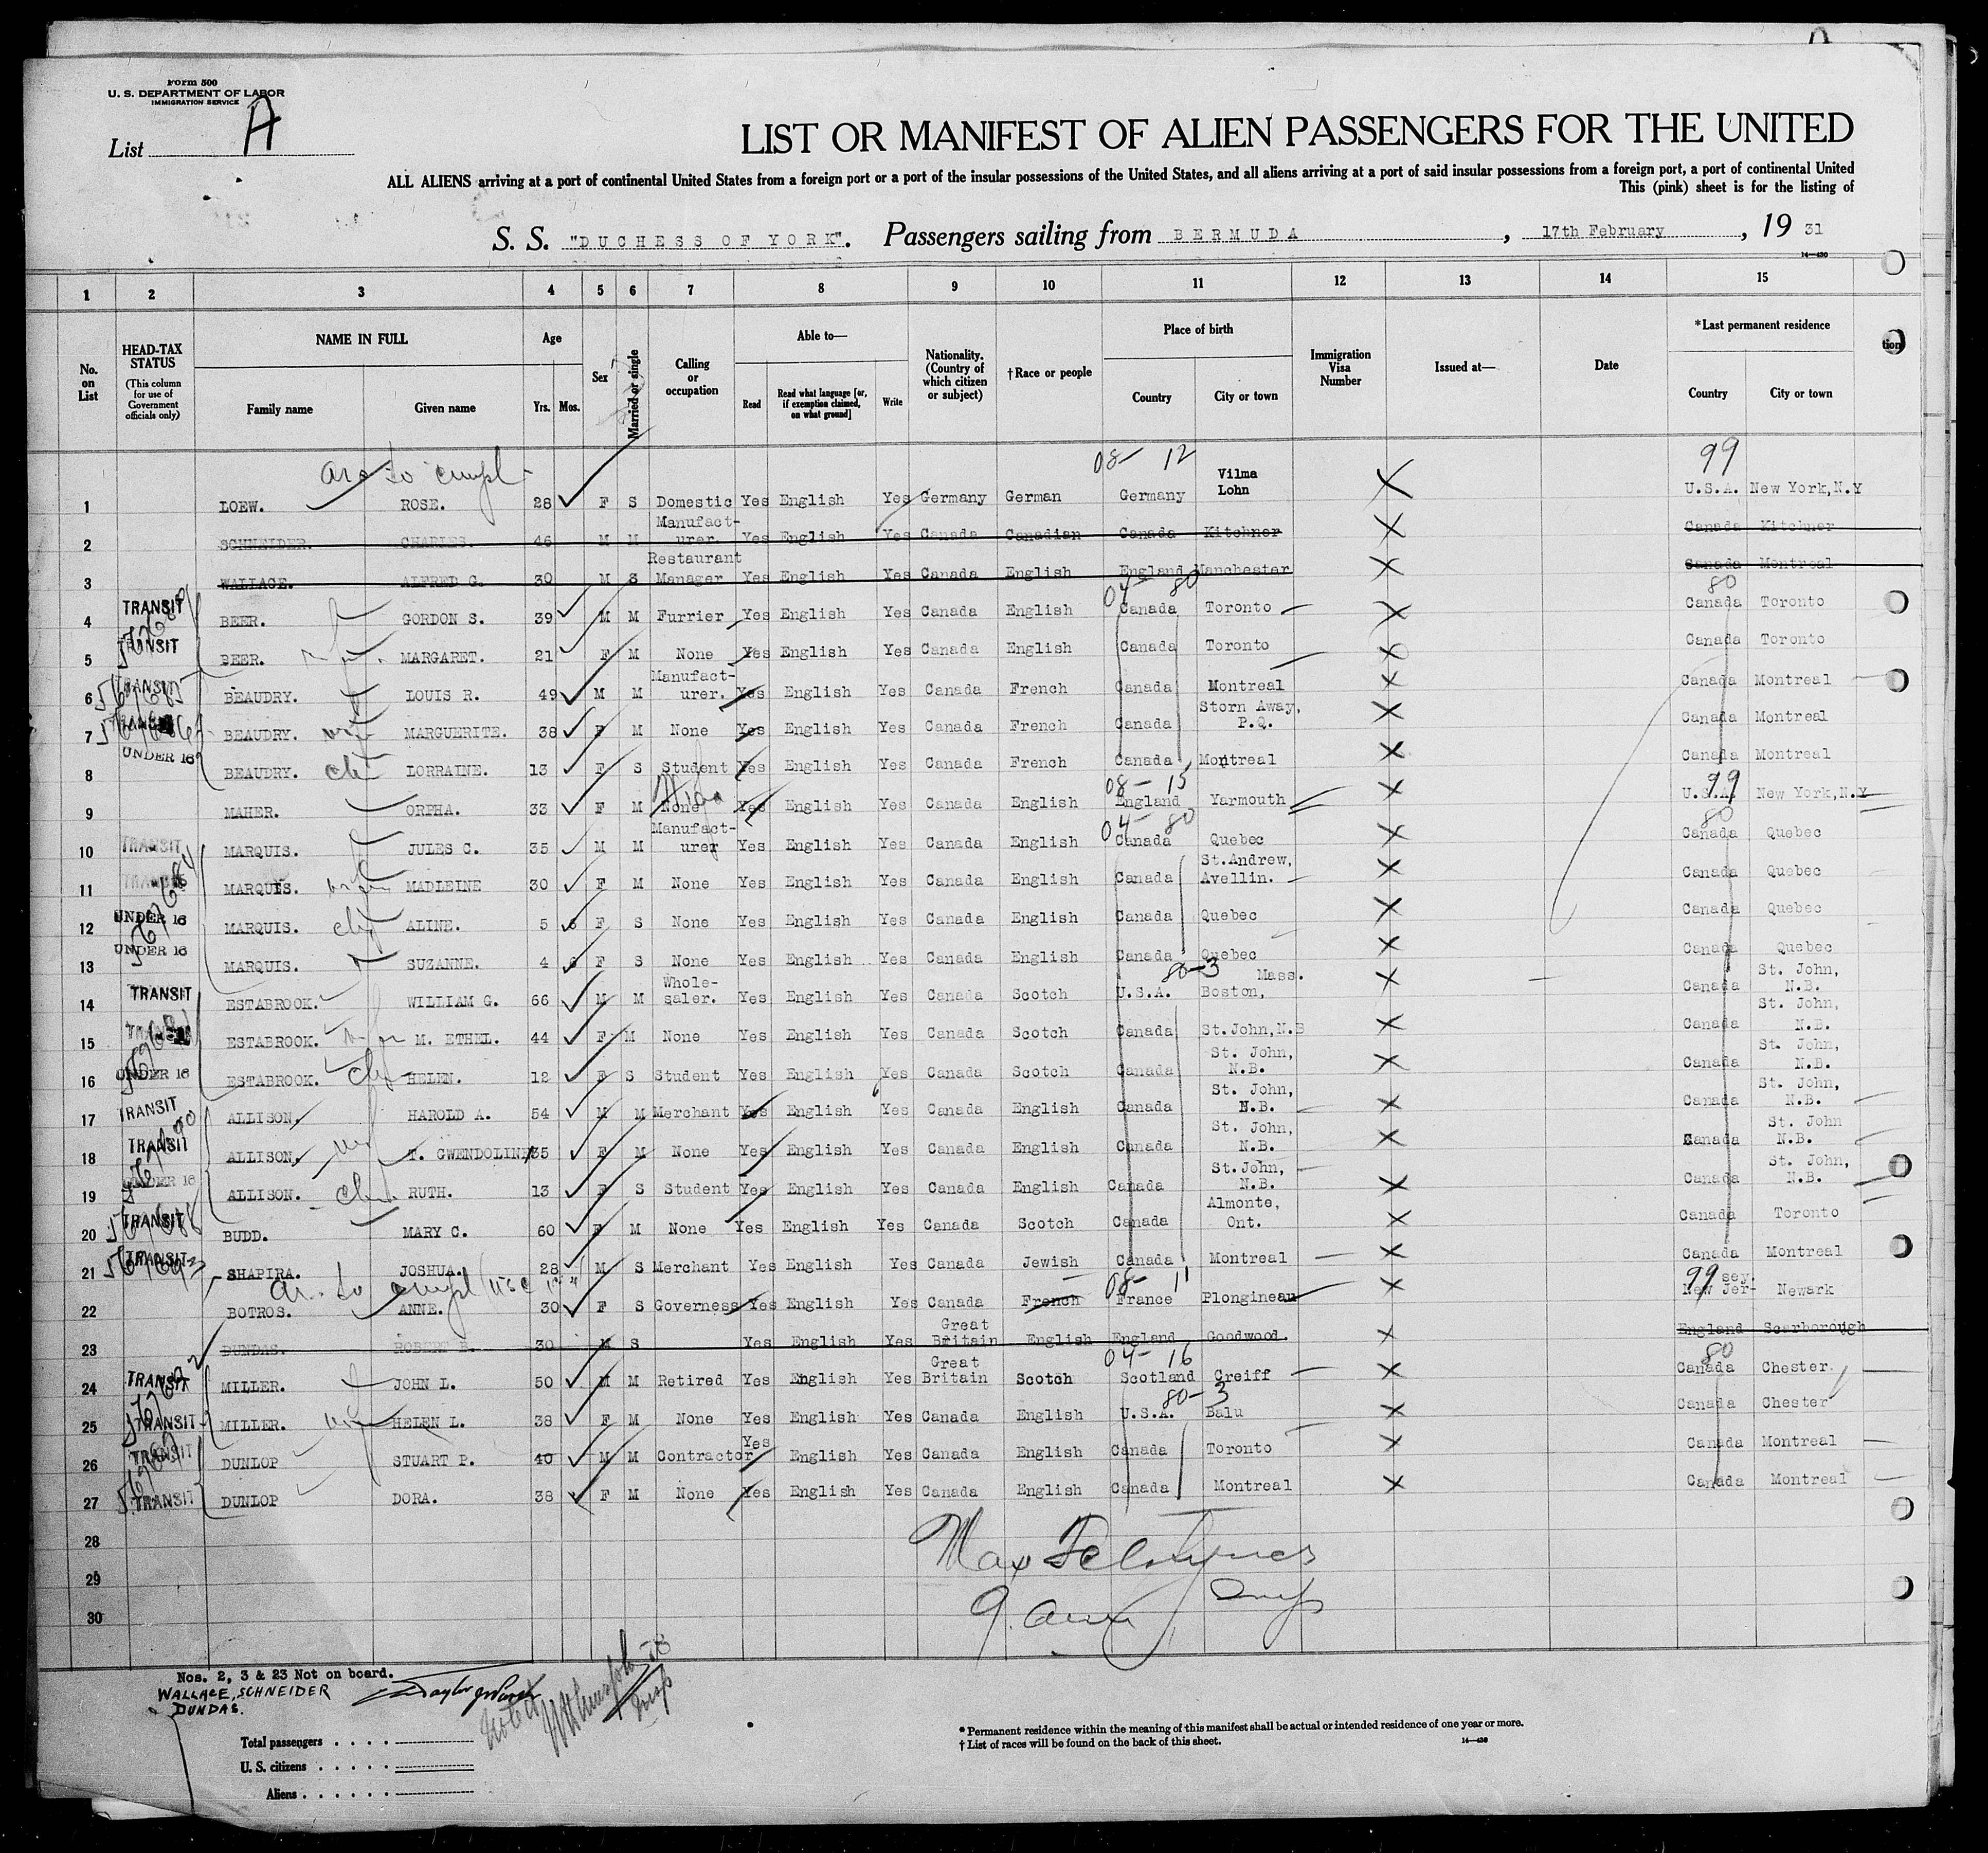 Form 500
U. S. DEPARTMENT OF LABOR
IMMIGRATION SERVICE
List A
LIST OR MANIFEST OF ALIEN PASSENGERS FOR THE UNITED
ALL ALIENS arriving at a port of continental United States from a foreign port or a port of the insular possessions of the United States, and all aliens arriving at a port of said insular possessions from a foreign port, a port of continental United
This (pink) sheet is for the listing of
S. S. "DUCHESS OF YORK". Passengers sailing from BERMUDA, 17th February, 19 31
14—430
1 2 3 4 5 6 7 8 9 10 11 12 13 14 15
No. on List
HEAD-TAX STATUS
(This column for use of Government officials only)
NAME IN FULL
Family name Given name
Age
Yrs. Mos.
Sex
Married or single
Calling or occupation
Able to—
Read Read what language [or, if exemption claimed, on what ground] Write
Nationality. (Country of which citizen or subject)
†Race or people
Place of birth
Country City or town
Immigration Visa Number
Issued at—
Date
*Last permanent residence
Country City or town
tion
08- 12 99
1 LOEW. ROSE. 28 F S Domestic Yes English Yes Germany German Germany Vilma Lohn U.S.A. New York, N.Y
2 SCHNEIDER. CHARLES. 46 M M Manufact-urer. Yes English Yes Canada Canadian Canada Kitchner Canada Kitchner
3 WALLACE. ALFRED G. 30 M S Restaurant Manager Yes English Yes Canada English England Manchester Canada Montreal
04- 80 80
4 TRANSIT BEER. GORDON S. 39 M M Furrier Yes English Yes Canada English Canada Toronto Canada Toronto
5 TRANSIT BEER. MARGARET. 21 F M None Yes English Yes Canada English Canada Toronto Canada Toronto
6 TRANSIT BEAUDRY. LOUIS R. 49 M M Manufact-urer. Yes English Yes Canada French Canada Montreal Canada Montreal
7 TRANSIT BEAUDRY. wife MARGUERITE. 38 F M None Yes English Yes Canada French Canada Storn Away, P.Q. Canada Montreal
8 UNDER 16 BEAUDRY. ch LORRAINE. 13 F S Student Yes English Yes Canada French Canada Montreal Canada Montreal
08- 15 99
9 MAHER. ORPHA. 33 F M None Yes English Yes Canada English England Yarmouth U.S.A. New York, N.Y
04- 80 80
10 TRANSIT MARQUIS. JULES C. 35 M M Manufact-urer Yes English Yes Canada English Canada Quebec Canada Quebec
11 TRANSIT MARQUIS. wife MADLEINE 30 F M None Yes English Yes Canada English Canada St.Andrew, Avellin. Canada Quebec
12 UNDER 16 MARQUIS. ALINE. 5 6 F S None Yes English Yes Canada English Canada Quebec Canada Quebec
13 UNDER 16 MARQUIS. SUZANNE. 4 6 F S None Yes English Yes Canada English Canada Quebec Canada Quebec
80-3
14 TRANSIT ESTABROOK. WILLIAM G. 66 M M Whole-saler. Yes English Yes Canada Scotch U.S.A. Boston, Mass. Canada St. John, N.B.
15 TRANSIT ESTABROOK. M. ETHEL. 44 F M None Yes English Yes Canada Scotch Canada St.John, N.B Canada St. John, N.B.
16 UNDER 16 ESTABROOK. HELEN. 12 F S Student Yes English Yes Canada Scotch Canada St. John, N.B. Canada St. John, N.B.
17 TRANSIT ALLISON, HAROLD A. 54 M M Merchant Yes English Yes Canada English Canada St. John, N.B. Canada St. John, N.B.
18 TRANSIT ALLISON, T. GWENDOLINE 35 F M None Yes English Yes Canada English Canada St. John, N.B. Canada St. John N.B.
19 UNDER 16 ALLISON. RUTH. 13 F S Student Yes English Yes Canada English Canada St.John, N.B. Canada St. John, N.B.
20 TRANSIT BUDD. MARY C. 60 F M None Yes English Yes Canada Scotch Canada Almonte, Ont. Canada Toronto
21 TRANSIT SHAPIRA. JOSHUA. 28 M S Merchant Yes English Yes Canada Jewish Canada Montreal Canada Montreal
08- 11 99
22 BOTROS. ANNE. 30 F S Governess Yes English Yes Canada French France Plongineau New Jer-sey. Newark
23 DUNDAS. ROBERT B. 30 M S Yes English Yes Great Britain English England Goodwood. England Scarborough
04- 16 80
24 TRANSIT MILLER. JOHN L. 50 M M Retired Yes English Yes Great Britain Scotch Scotland Creiff Canada Chester
80-3
25 TRANSIT MILLER. wife HELEN L. 38 F M None Yes English Yes Canada English U.S.A. Balu Canada Chester
26 TRANSIT DUNLOP STUART P. 40 M M Contractor Yes English Yes Canada English Canada Toronto Canada Montreal
27 TRANSIT DUNLOP DORA. 38 F M None Yes English Yes Canada English Canada Montreal Canada Montreal
28
29
30
Nos. 2, 3 & 23 Not on board.
WALLACE, SCHNEIDER
DUNDAS.
Total passengers
U. S. citizens
Aliens
* Permanent residence within the meaning of this manifest shall be actual or intended residence of one year or more.
† List of races will be found on the back of this sheet.
14—430